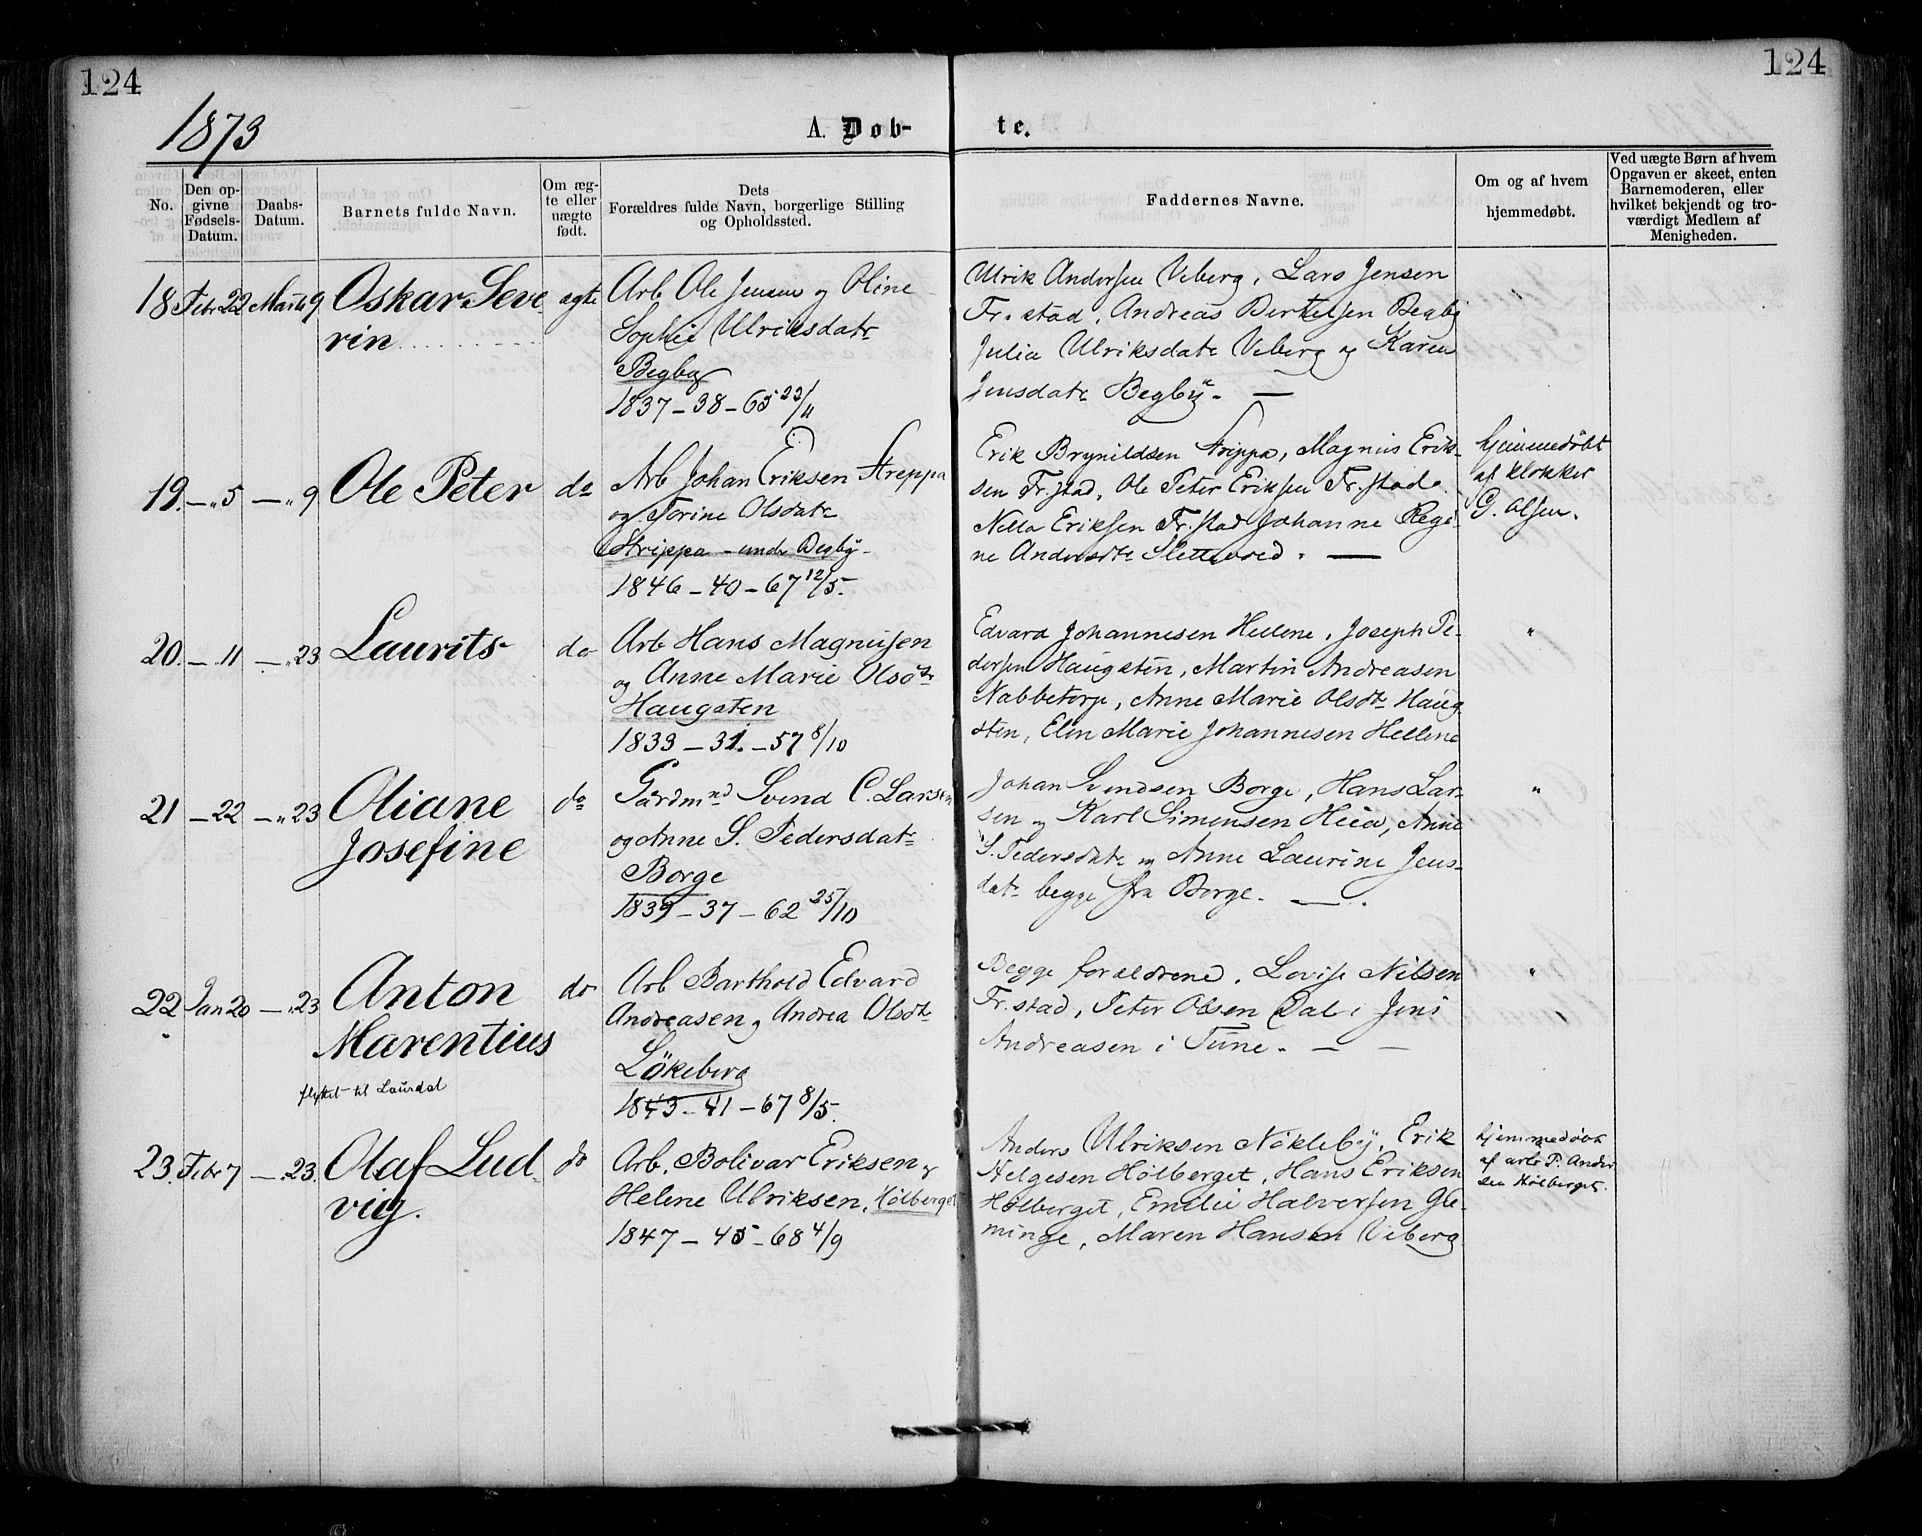 124
124
1873
A. Døb-
te.
No.
Den op-
givne
Fødsels-
Datum.
Daabs-
Datum.
Barnets fulde Navn.
Om æg-
te eller
uægte
født.
Dets
Forældres fulde Navn, borgerlige Stilling
og Opholdssted.
Faddernes Navne.
Om og af hvem
hjemmedøbt.
Ved uægte Børn af hvem
Opgaven er skeet, enten
Barnemoderen, eller
hvilket bekjendt og tro-
værdigt Medlem af
Menigheden.
18 Febr 22 Marts 9 Oskar Seve-
rin
ægte
Arb Ole Jensen og Oline
Sophie Ulriksdatr
Begby
1837 - 38 - 65 23/11
Ulrik Andersen Viberg, Lars Jensen
Fr.stad, Andreas Bertelsen Begby
Julia Ulriksdatr Viberg og Karen
Jensdatr Begby. —
"
19. — " 5 — " 9 Ole Peter do
Arb Johan Eriksen Streppa
og Torine Olsdatr
Strippa - under Begby -
1846 - 40 - 67 12/5.
Erik Brynildsen Strippa, Magnus Erik-
sen Fr.stad, Ole Peter Eriksen Fr.stad.
Nella Eriksen Fr.stad Johanne Regi-
ne Andersdtr Slettevold. —
hjemmedøbt
af Klokker
G. Olsen.
20. — " 11 — " 23 Laurits do
Arb Hans Magnusen
og Anne Marie Olsdtr
Haugsten
1833 - 31. - 57 8/10
Edvard Johannesen Hellene, Joseph Pe-
dersen Haugsten, Martin Andreasen
Nabbetorp, Anne Marie Olsdtr Haug-
sten, Elen Marie Johannesen Hellene
"
21 — 22 — " 23 Oliane
Josefine
do
Gårdmnd Svend C. Larsen
og Anne S. Pedersdatr
Borge
1839 - 37 - 62 25/10
Johan Svendsen Borge, Hans Lar-
sen og Karl Simensen Heia, Anne
S. Pedersdatr og Anne Laurine Jens-
datr begge fra Borge. — .
"
22 Jan 20 — " 23 Anton
Marentius
flyttet til Laurdal
do
Arb Barthold Edvard
Andreasen og Andrea Olsdtr
Lökeberg
1843 - 41 - 67 8/5.
Begge forældrene, Lovise Nilsen
Fr.stad, Peter Olsen Dal i Jens
Andreasen i Tune. — —
"
23. Febr 7 — " 23. Olaf Lud-
vig.
do
Arb. Bolivar Eriksen og
Helene Ulriksen, Hølberget
1847 - 45 - 68 4/9
Anders Ulriksen Nökleby, Erik
Helgesen Hölberget, Hans Eriksen
Hölberget, Emilie Halversen Gle-
minge, Maren Hansen Viberg
hjemmedøbt
af arb P. Ander
sen Hölberget.